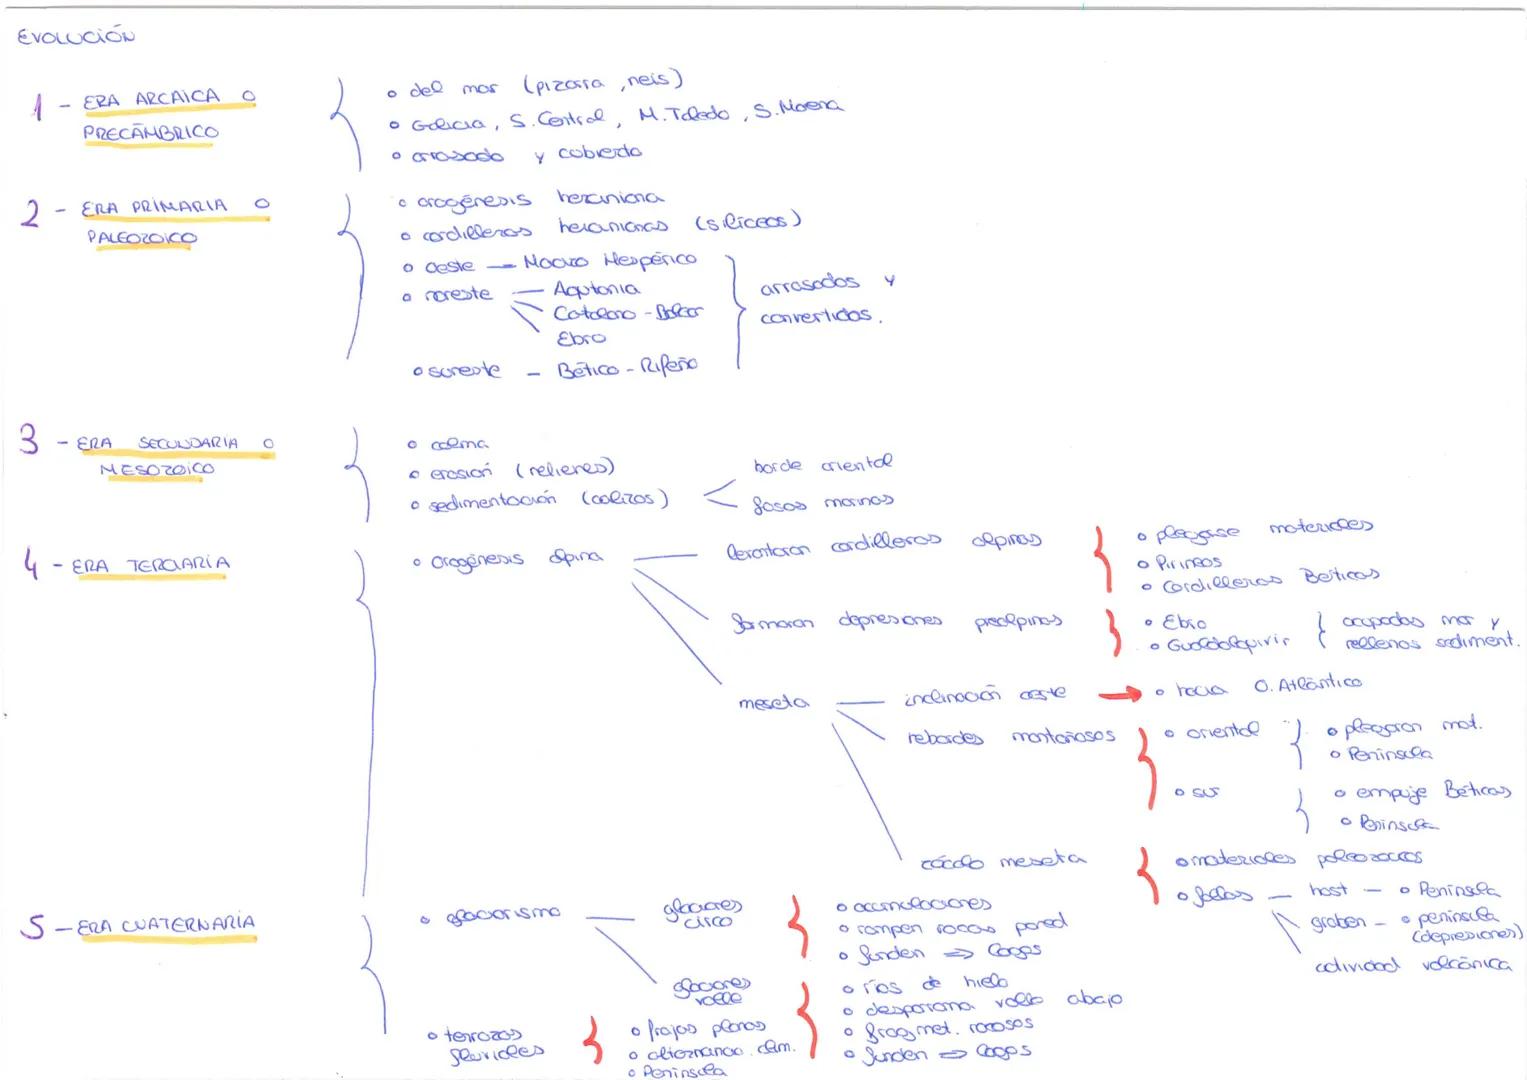 EVOLUCIÓN
1 - ERA ARCAICA O
PRECÁMBRICO
o del mar (pizarra, neis)
o Galicia, S. Central, M. Toledo, S. Morena
o arrasado y cubierto
2 - ERA PRIMARIA O
PALEOZOICO
o orogénesis herciniana
o cordilleras hercinianas (silíceas)
o oeste — Macizo Hespérico
o noreste — Aquitania
Catalano - Balear
Ebro
o sureste - Bético - Rifeño
arrasados y
convertidos.
3 - ERA SECUNDARIA O
MESOZOICO
o calma
o erosión (relieves)
o sedimentación (calizas)
borde oriental
fosas marinas
4 - ERA TERCIARIA
o Orogénesis alpina
levantaron cordilleras alpinas
o plegarse materiales
o Pirineos
o Cordilleras Béticas
formaron depresiones prealpinas
o Ebro
o Guadalquivir
ocupadas mar y
rellenas sediment.
meseta
inclinación oeste
o hacia O. Atlántico
rebordes montañosos
o oriental
o plegaron mat.
o Península
o sur
o empuje Béticas
o Península
zócalo meseta
o materiales paleozoicos
o fallas — host — o Península
graben — o península
(depresiones)
actividad volcánica
5 - ERA CUATERNARIA
o glaciarismo
glaciares
circo
o acumulaciones
o rompen rocas pared
o funden => lagos
glaciares
valle
o ríos de hielo
o desparrama valle abajo
o fragmet. rocosos
o funden => lagos
o terrazas
fluviales
o frajas planas
o alternancia clim.
o Península